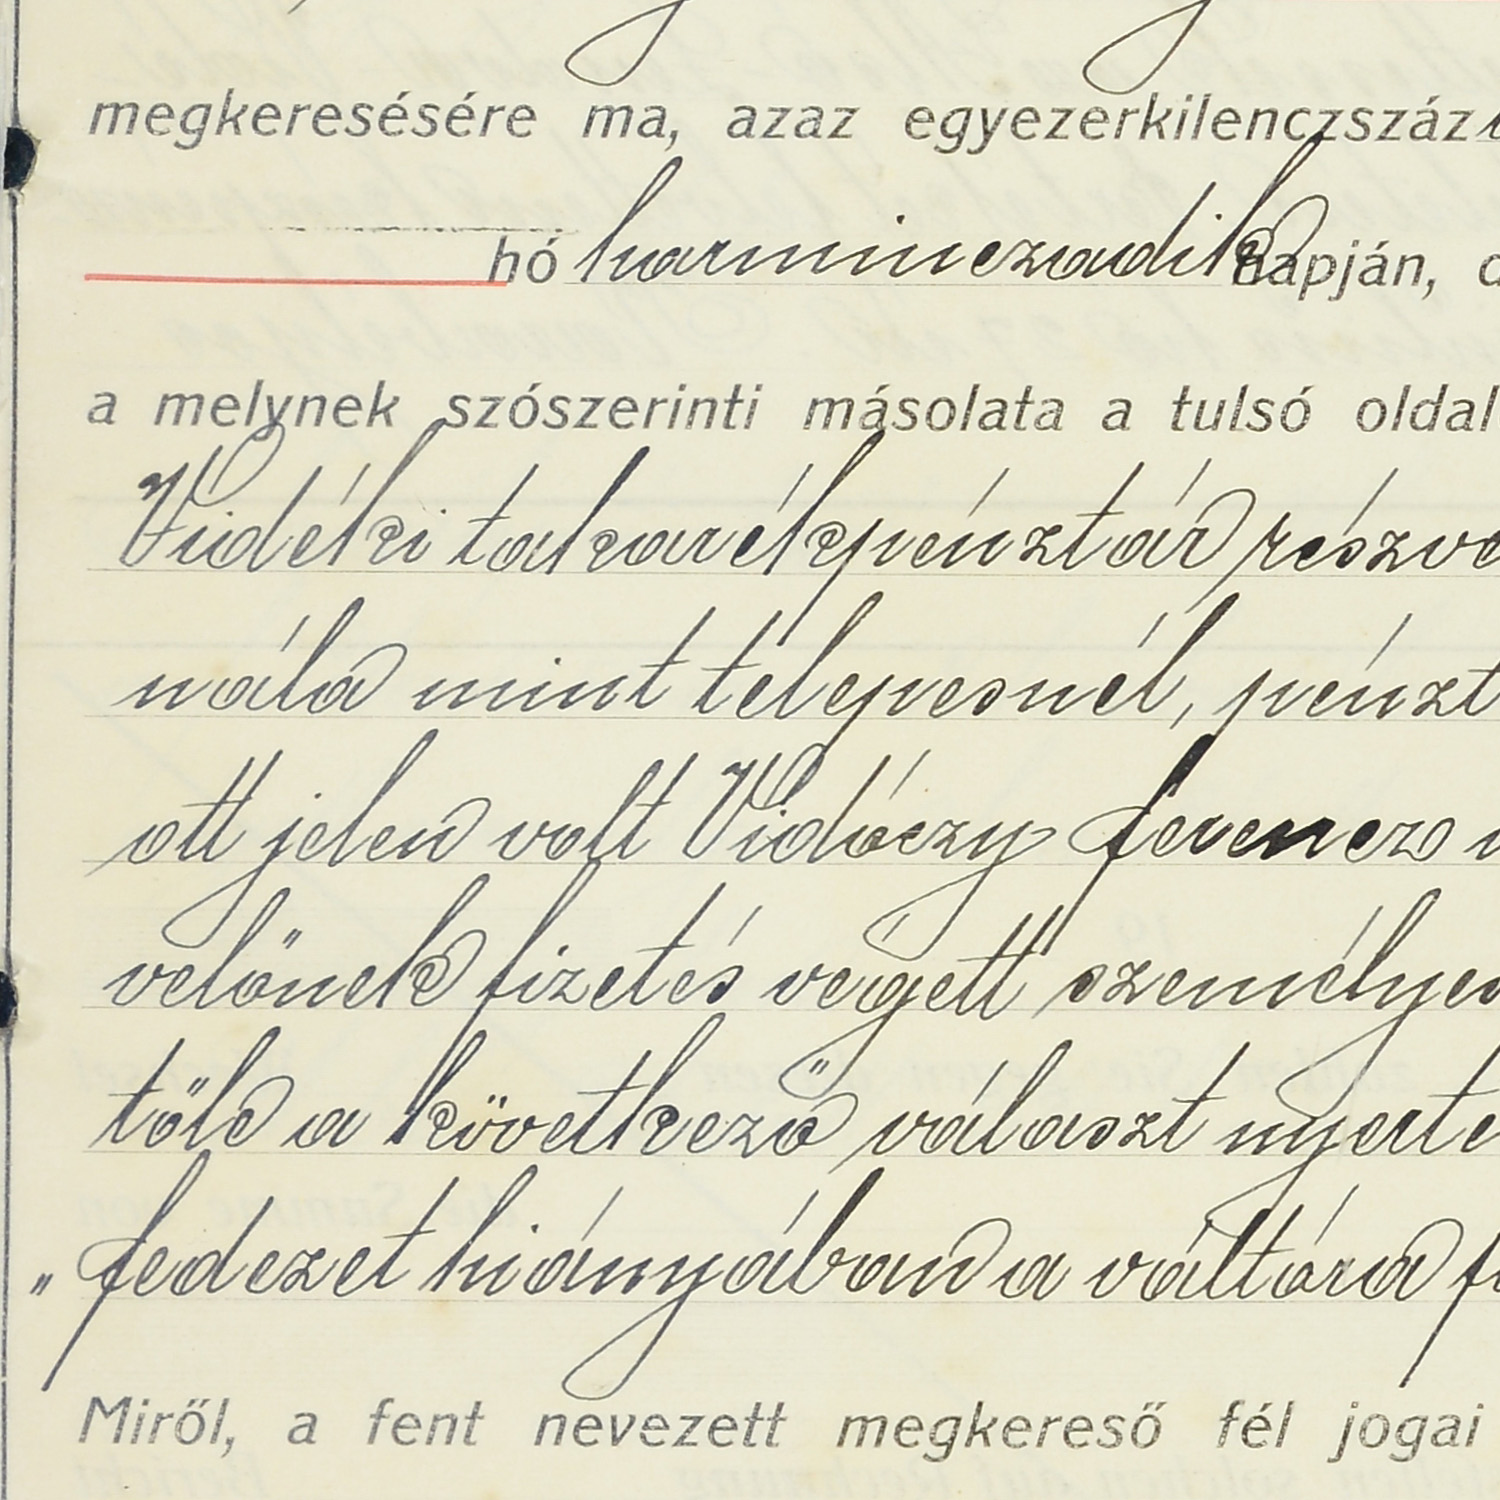 megkeresésére ma, azaz egyezerkilenczszáz
hó harminczadik napján,
a melynek szószerinti másolata a tulsó oldal
Vidéki takarékpénztár részve
nála mint telepesnél, pénzt
ott jelen volt Vidóczy Ferencz
velőnek fizetés végett személyes
tőle a következő választ nyerte
„fedezet hiányában a váltóra fi
Miről, a fent nevezett megkereső fél jogai